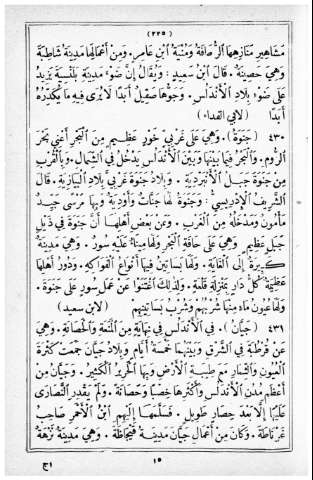 (٢٢٥)
مَشَاهِيرِ مَنَازِهِهَا ٱلرُّصَافَةُ وَمُنْيَةُ ٱبْنِ عَامِرٍ. وَمِنْ أَعْمَالِهَا مَدِينَةُ شَاطِبَةَ
وَهِيَ حَصِينَةٌ. قَالَ ٱبْنُ سَعِيدٍ: وَيُقَالُ إِنَّ ضَوْءَ مَدِينَةِ بَلَنْسِيَةَ يَزِيدُ
عَلَى ضَوْءِ بِلَادِ ٱلْأَنْدَلُسِ. وَجَوُّهَا صَقِيلٌ أَبَدًا لَا يُرَى فِيهِ مَا يُكَدِّرُهُ
أَبَدًا (لابي الفداء)
٤٣٠ (جَنَوَةُ). وَهِيَ عَلَى غَرْبِيِّ خَوْرٍ عَظِيمٍ مِنَ ٱلْبَحْرِ أَعْنِي بَحْرَ
ٱلرُّومِ. وَٱلْبَحْرُ فِيمَا بَيْنَهَا وَبَيْنَ ٱلْأَنْدَلُسِ يَدْخُلُ فِي ٱلشَّمَالِ. وَبِٱلْقُرْبِ
مِنْ جَنَوَةَ جَبَلُ ٱلْأَنْبَرْدِيَّةِ. وَبِلَادُ جَنَوَةَ غَرْبِيَّ بِلَادِ ٱلْبَيَازِنَةِ. قَالَ
ٱلشَّرِيفُ ٱلْإِدْرِيسِيُّ: وَجَنَوَةُ لَهَا جَنَّاتٌ وَأَوْدِيَةٌ وَبِهَا مَرْسًى جَيِّدٌ
مَأْمُونٌ وَمَدْخَلُهُ مِنَ ٱلْغَرْبِ. وَعَنْ بَعْضِ أَهْلِهَا أَنَّ جَنَوَةَ فِي ذَيْلِ
جَبَلٍ عَظِيمٍ وَهِيَ عَلَى حَافَةِ ٱلْبَحْرِ وَلَهَا مِينَاءٌ عَلَيْهِ سُورٌ. وَهِيَ مَدِينَةٌ
كَبِيرَةٌ إِلَى ٱلْغَايَةِ. وَلَهَا بَسَاتِينُ فِيهَا أَنْوَاعُ ٱلْفَوَاكِهِ. وَدُورُ أَهْلِهَا
عَظِيمَةٌ كُلُّ دَارٍ بِمَنْزِلَةِ قَلْعَةٍ. وَلِذٰلِكَ ٱغْتَنَوْا عَنْ عَمَلِ سُورٍ عَلَى جَنَوَةَ.
وَلَهَا عُيُونُ مَاءٍ مِنْهَا شُرْبُهُمْ وَشُرْبُ بَسَاتِينِهِمْ (لابن سعيد)
٤٣١ (جَيَّانُ). فِي ٱلْأَنْدَلُسِ فِي نِهَايَةٍ مِنَ ٱلْمَنَعَةِ وَٱلْحَصَانَةِ. وَهِيَ
عَنْ قُرْطُبَةَ فِي ٱلشَّرْقِ وَبَيْنَهُمَا خَمْسَةُ أَيَّامٍ وَبِلَادُ جَيَّانَ جَمَعَتْ كَثْرَةَ
ٱلْعُيُونِ وَٱلثِّمَارِ مَعَ طِيبَةِ ٱلْأَرْضِ وَبِهَا ٱلْحَرِيرُ ٱلْكَثِيرُ. وَجَيَّانُ مِنْ
أَعْظَمِ مُدُنِ ٱلْأَنْدَلُسِ وَأَكْثَرِهَا خِصْبًا وَحَصَانَةً. وَلَمْ يَقْدِرِ ٱلنَّصَارَى
عَلَيْهَا إِلَّا بَعْدَ حِصَارٍ طَوِيلٍ. فَسَلَّمَهَا إِلَيْهِمِ ٱبْنُ ٱلْأَحْمَرِ صَاحِبُ
غَرْنَاطَةَ. وَكَانَ مِنْ أَعْمَالِ جَيَّانَ مَدِينَةُ قَيْجَاطَةَ. وَهِيَ مَدِينَةٌ نَزْهَةٌ
١٥
ج١